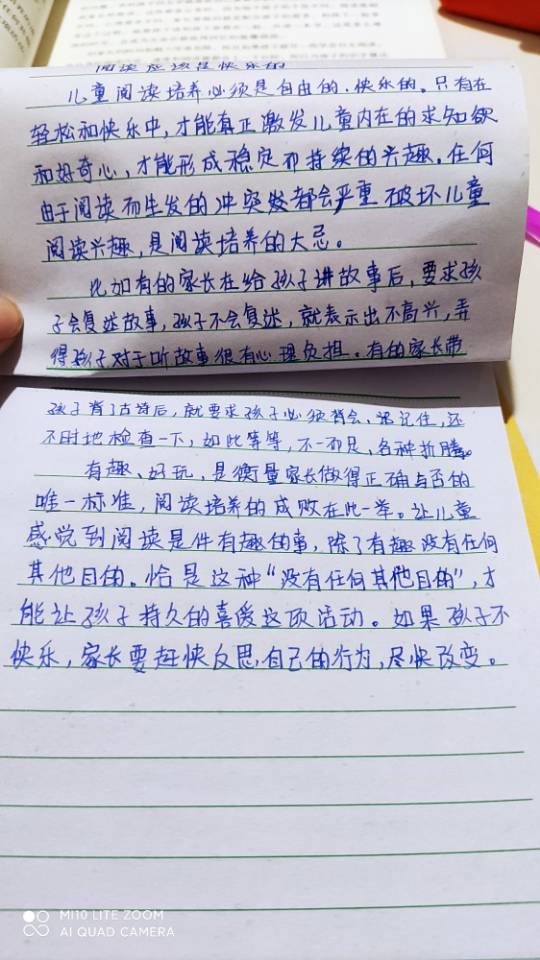 阅读应该是快乐的
儿童阅读培养必须是自由的、快乐的。只有在
轻松和快乐中，才能真正激发儿童内在的求知欲
和好奇心，才能形成稳定而持续的兴趣。任何
由于阅读而生发的冲突发都会严重破坏儿童
阅读兴趣，是阅读培养的大忌。
比如有的家长在给孩子讲故事后，要求孩
子会复述故事，孩子不会复述，就表示出不高兴，弄
得孩子对于听故事很有心理负担。有的家长带
孩子背了古诗后，就要求孩子必须背会、记住，还
不时地检查一下，如此等等，不一而足，各种折腾。
有趣、好玩，是衡量家长做得正确与否的
唯一标准，阅读培养的成败在此一举。让儿童
感觉到阅读是件有趣的事，除了有趣没有任何
其他目的。恰是这种“没有任何其他目的”，才
能让孩子持久的喜爱这项活动。如果孩子不
快乐，家长要赶快反思自己的行为，尽快改变。
MI10 LITE ZOOM
AI QUAD CAMERA